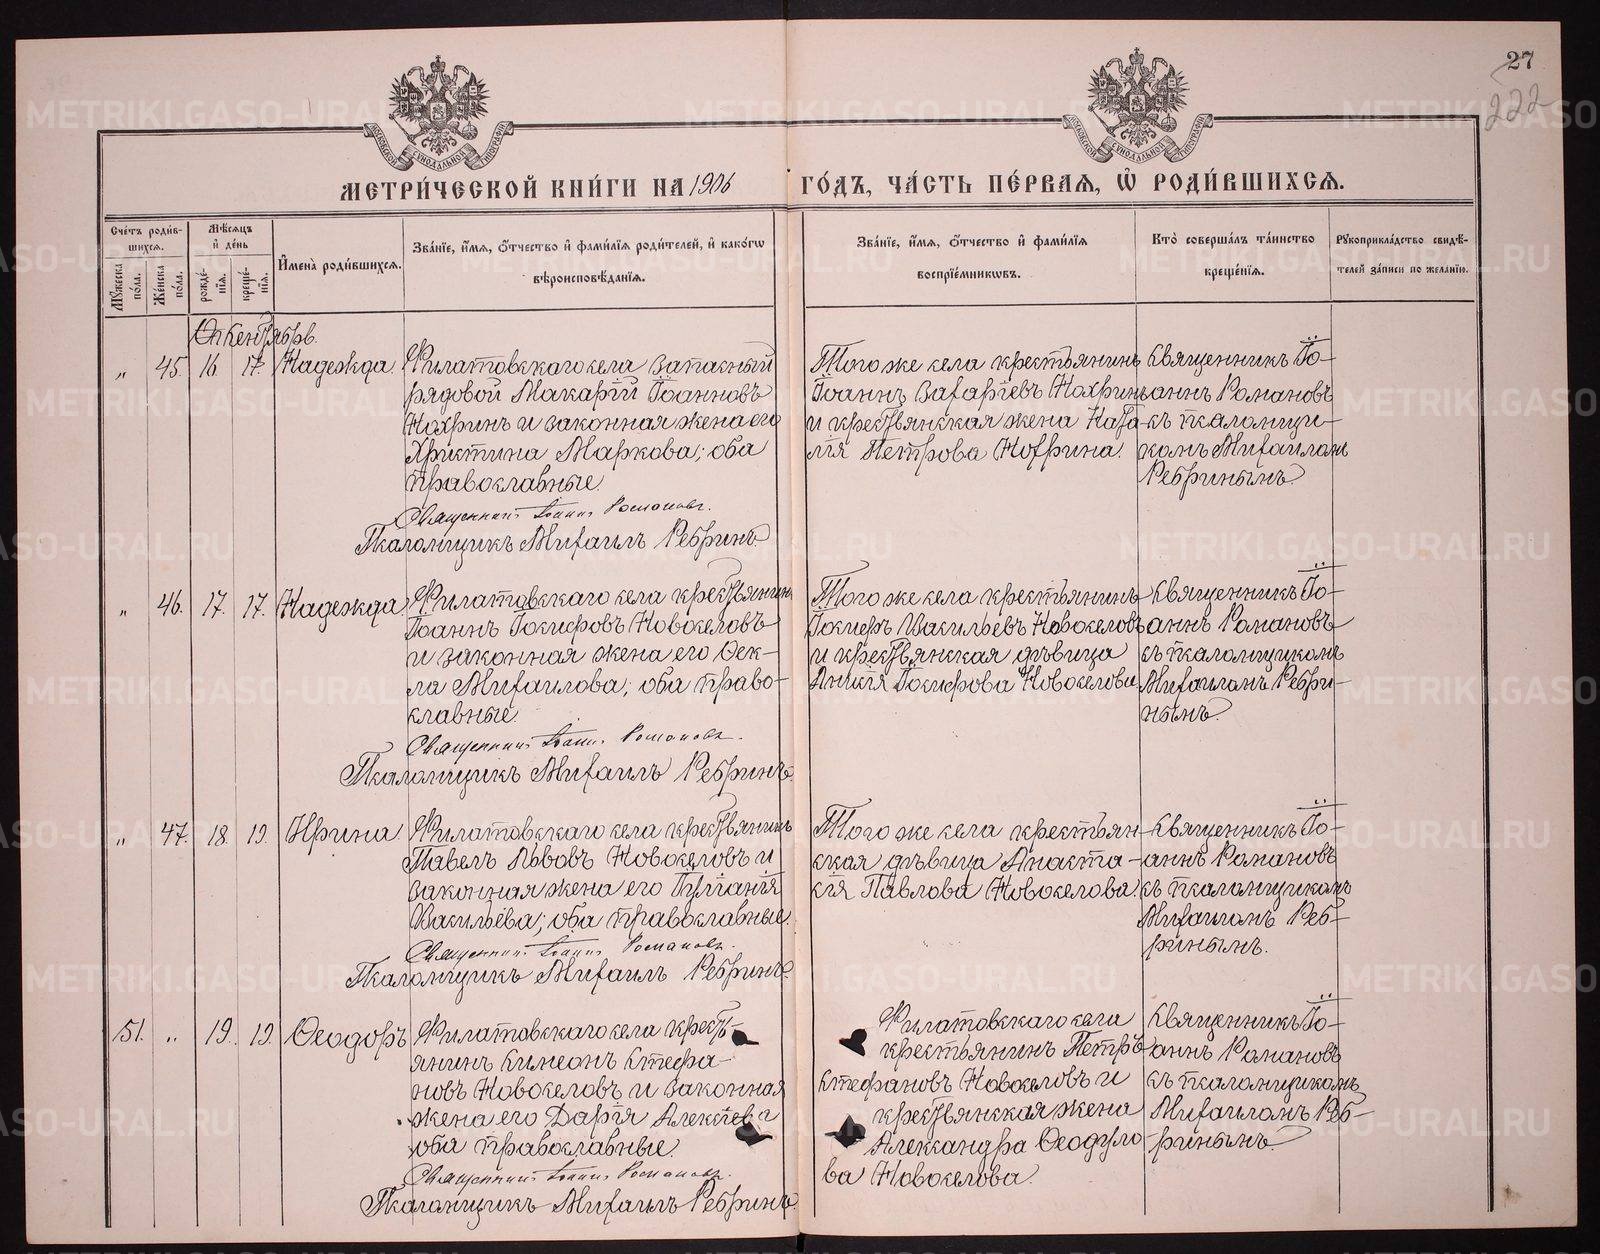 27
222
МОСКОВСКОЙ СУНОДАЛЬНОЙ ТИПОГРАФІИ
МОСКОВСКОЙ СУНОДАЛЬНОЙ ТИПОГРАФІИ
МЕТРИ́ЧЕСКОЙ КНИ́ГИ НА 1906 ГО́ДЪ, ЧА́СТЬ ПЕ́РВАЯ, Ѡ РОДИ́ВШИХСЯ.
Сче́тъ роди́в-
шихся.
Мѣ́сяцъ
и҆ де́нь
Му́жеска по́ла.
Же́нска по́ла.
рожде́-
нія.
креще́-
нія.
И҆мена̀ роди́вшихся.
Зва́ніе, и҆́мя, ѻ҆́тчество и҆ фами́лія роди́телей, и҆ како́гѡ
вѣроисповѣ́данія.
Зва́ніе, и҆́мя, ѻ҆́тчество и҆ фами́лія
воспріе́мникѡвъ.
Кто̀ соверша́лъ та́инство
креще́нія.
Рукоприкла́дство свидѣ́-
телей за́писи по жела́нію.
„ 45. 16. 17. Надежда.
Филатовскаго села запасный
рядовой Макарій Іоанновъ
Нохринъ и законная жена его
Христина Маркова; оба
православные.
Священникъ Іоаннъ Романовъ.
Псаломщикъ Михаилъ Ребринъ.
Того же села крестьянинъ
Іоаннъ Захаріевъ Нохринъ
и крестьянская жена Ната-
лія Петрова Нохрина.
Священникъ Іо-
аннъ Романовъ
съ псаломщи-
комъ Михаиломъ
Ребринымъ.
„ 46. 17. 17. Надежда.
Филатовскаго села крестьянинъ
Іоаннъ Іосифовъ Новоселовъ
и законная жена его Ѳек-
ла Михаилова; оба право-
славные.
Священникъ Іоаннъ Романовъ.
Псаломщикъ Михаилъ Ребринъ.
Того же села крестьянинъ
Іосифъ Васильевъ Новоселовъ
и крестьянская дѣвица
Анисія Іосифова Новоселова
Священникъ Іо-
аннъ Романовъ
съ псаломщикомъ
Михаиломъ Ребри-
нымъ.
„ 47. 18. 19. Ирина.
Филатовскаго села крестьянинъ
Павелъ Львовъ Новоселовъ и
законная жена его Іуліанія
Васильева; оба православные.
Священникъ Іоаннъ Романовъ.
Псаломщикъ Михаилъ Ребринъ.
Того же села крестьян-
ская дѣвица Анаста-
сія Павлова Новоселова.
Священникъ Іо-
аннъ Романовъ
съ псаломщикомъ
Михаиломъ Реб-
ринымъ.
51. „ 19. 19. Ѳеодоръ
Филатовскаго села кресть-
янинъ Симеонъ Стефа-
новъ Новоселовъ и законная
жена его Дарія
оба православные.
Священникъ Іоаннъ Романовъ.
Псаломщикъ Михаилъ Ребринъ.
Филатовскаго села
крестьянинъ Петръ
Стефановъ Новоселовъ и
крестьянская жена
Александра Ѳеодуло-
ва Новоселова.
Священникъ Іо-
аннъ Романовъ
съ псаломщикомъ
Михаиломъ Реб-
ринымъ.
METRIKI.GASO-URAL.RU